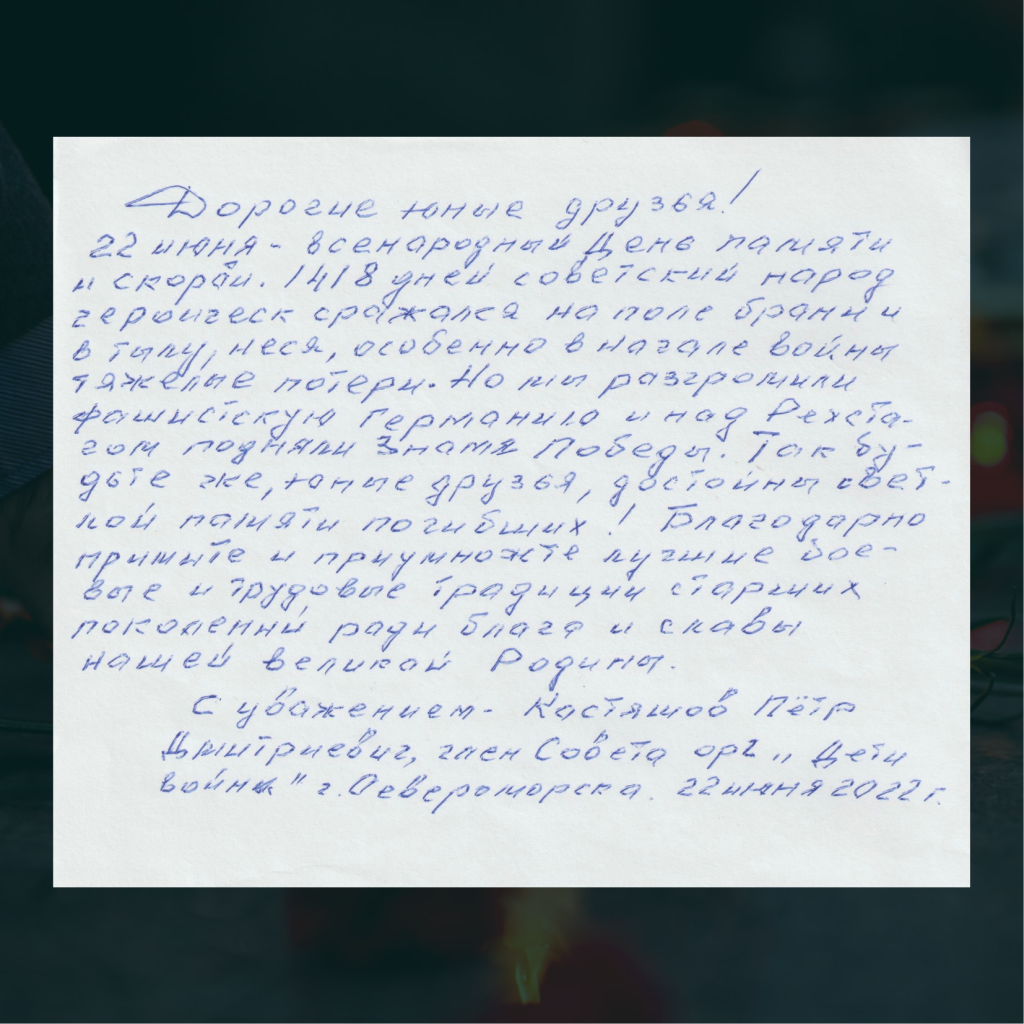 Дорогие юные друзья!
22 июня - всенародный День памяти
и скорби. 1418 дней советский народ
героическ сражался на поле брани и
в тылу, неся, особенно в начале войны
тяжелые потери. Но мы разгромили
фашистскую Германию и над Рехста-
гом подняли Знамя Победы. Так бу-
дьте же, юные друзья, достойны свет-
лой памяти погибших! Благодарно
примите и приумножте лучшие бое-
вые и трудовые традиции старших
поколений ради блага и славы
нашей великой Родины.
С уважением - Костяшов Пётр
Дмитриевич, член Совета орг „Дети
войны" г. Североморска. 22 июня 2022 г.